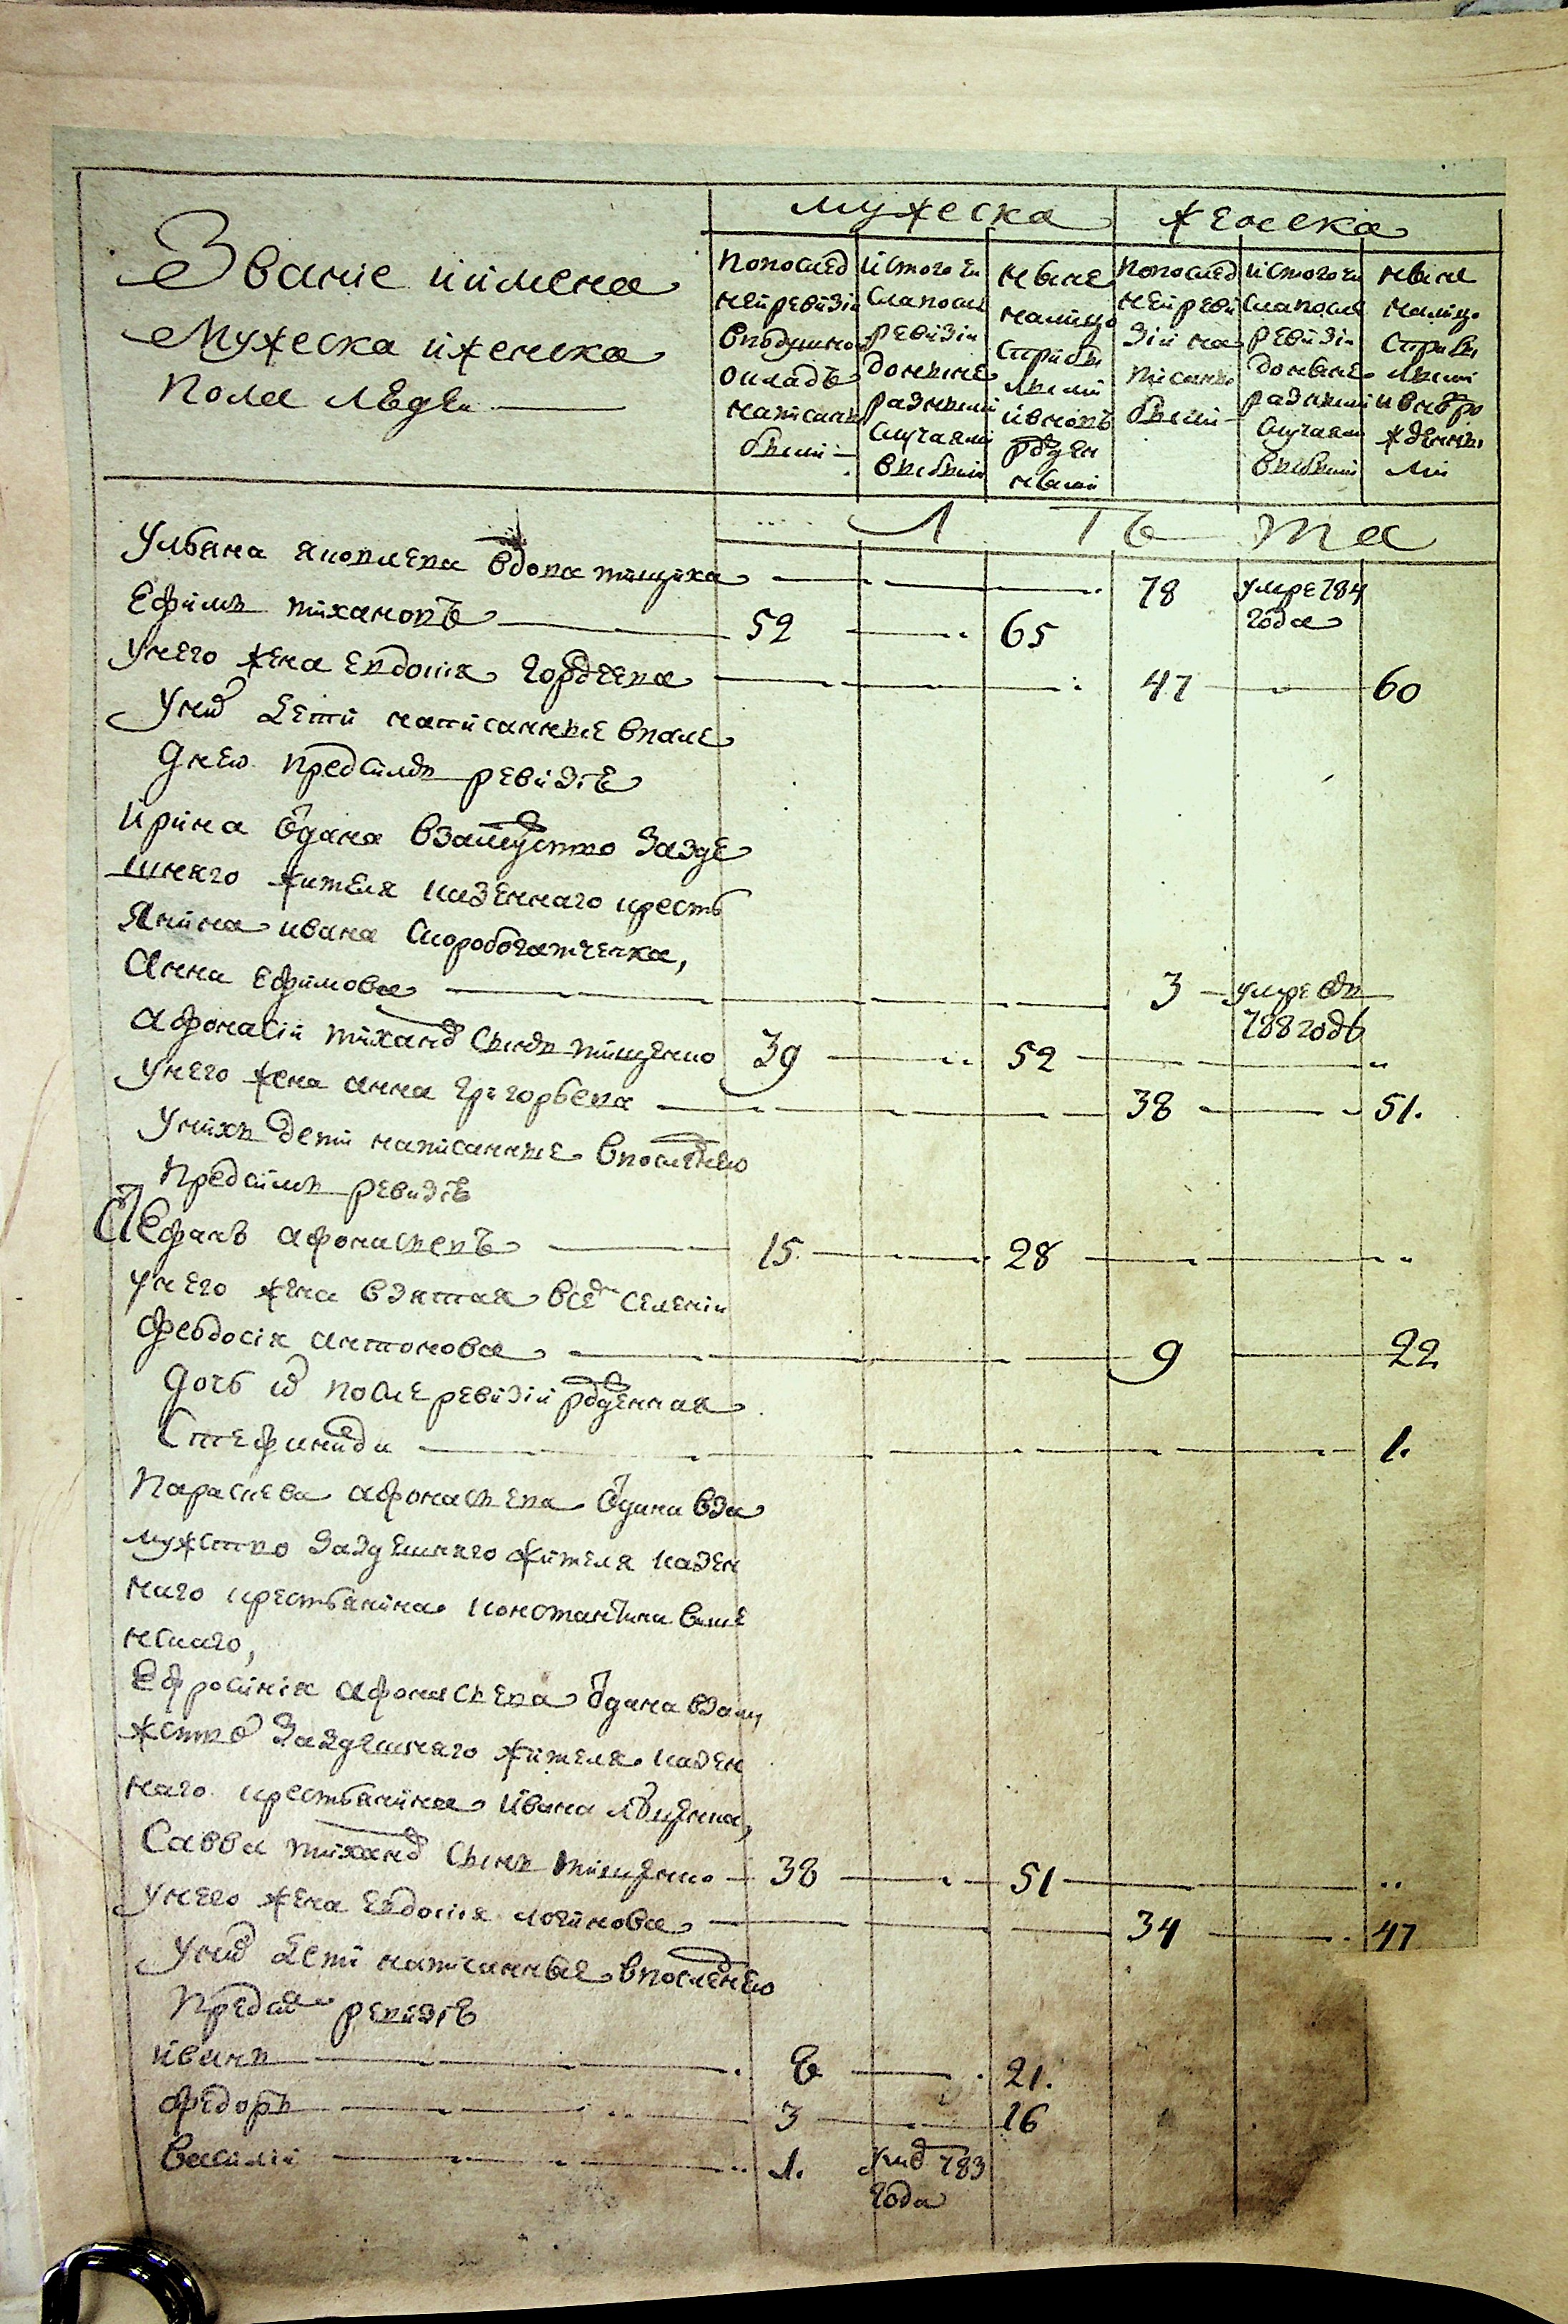 мужеска женска
Званіе и имена
Мужеска и женска
пола людеи
попослед
ней ревизіи
вподушном
окладѣ
написан
ныхъ
Истого чи
сла после
ревизіи
доныне
разными
случаями
выбыли
ныне
налицо
сприбы
лыми
ивновь
рожден
ными
попослед
ней реви
зіи на
писано
Истого чи
сла после
ревизіи
доныне
разными
случаями
выбыли
ныне
налицо
сприбы
лыми
ивновро
жденны
ми
Л Ѣ та
Ульяна яковлева вдова тищиха 78 умре 784 года
Ефимъ тихановъ 52 65
Унего жена евдокия гордѣева 47 60
Уних дети написанные впосле
днею предсимъ ревизіѣ
Ирина отдана взамужство зазде
шняго жителя казеннаго кресть
янина ивана скоробогатченка,
Анна ефимова 3 умре въ 788 годѣ
Афонасій тиханов сынъ тищенко 39 52
Унего жена анна григорьева 38 51.
Унихъ дети написанные впоследнею
предсимъ ревизіѣ
Стефанъ афонасьевъ 15 28
унего жена взятая всем селеніи
феодосія антонова 9 22
дочь их после ревизіи рожденная
Стефанида 1.
Параскева афонасьева отдана вза
мужство заздешняго жителя казен
наго крестьянина константина
нскаго,
Ефросинія афонасьева отдана взаму
жство заздешняго жителя казен
наго крестьянина Ивана
Савва тиханов сынъ тищенко 38 51
Унего жена евдокия логинова 34 47
Уних дети написанные впоследнею
предсим ревизіѣ
иванъ 8 21.
федоръ 3 16
василій 1. 783 года